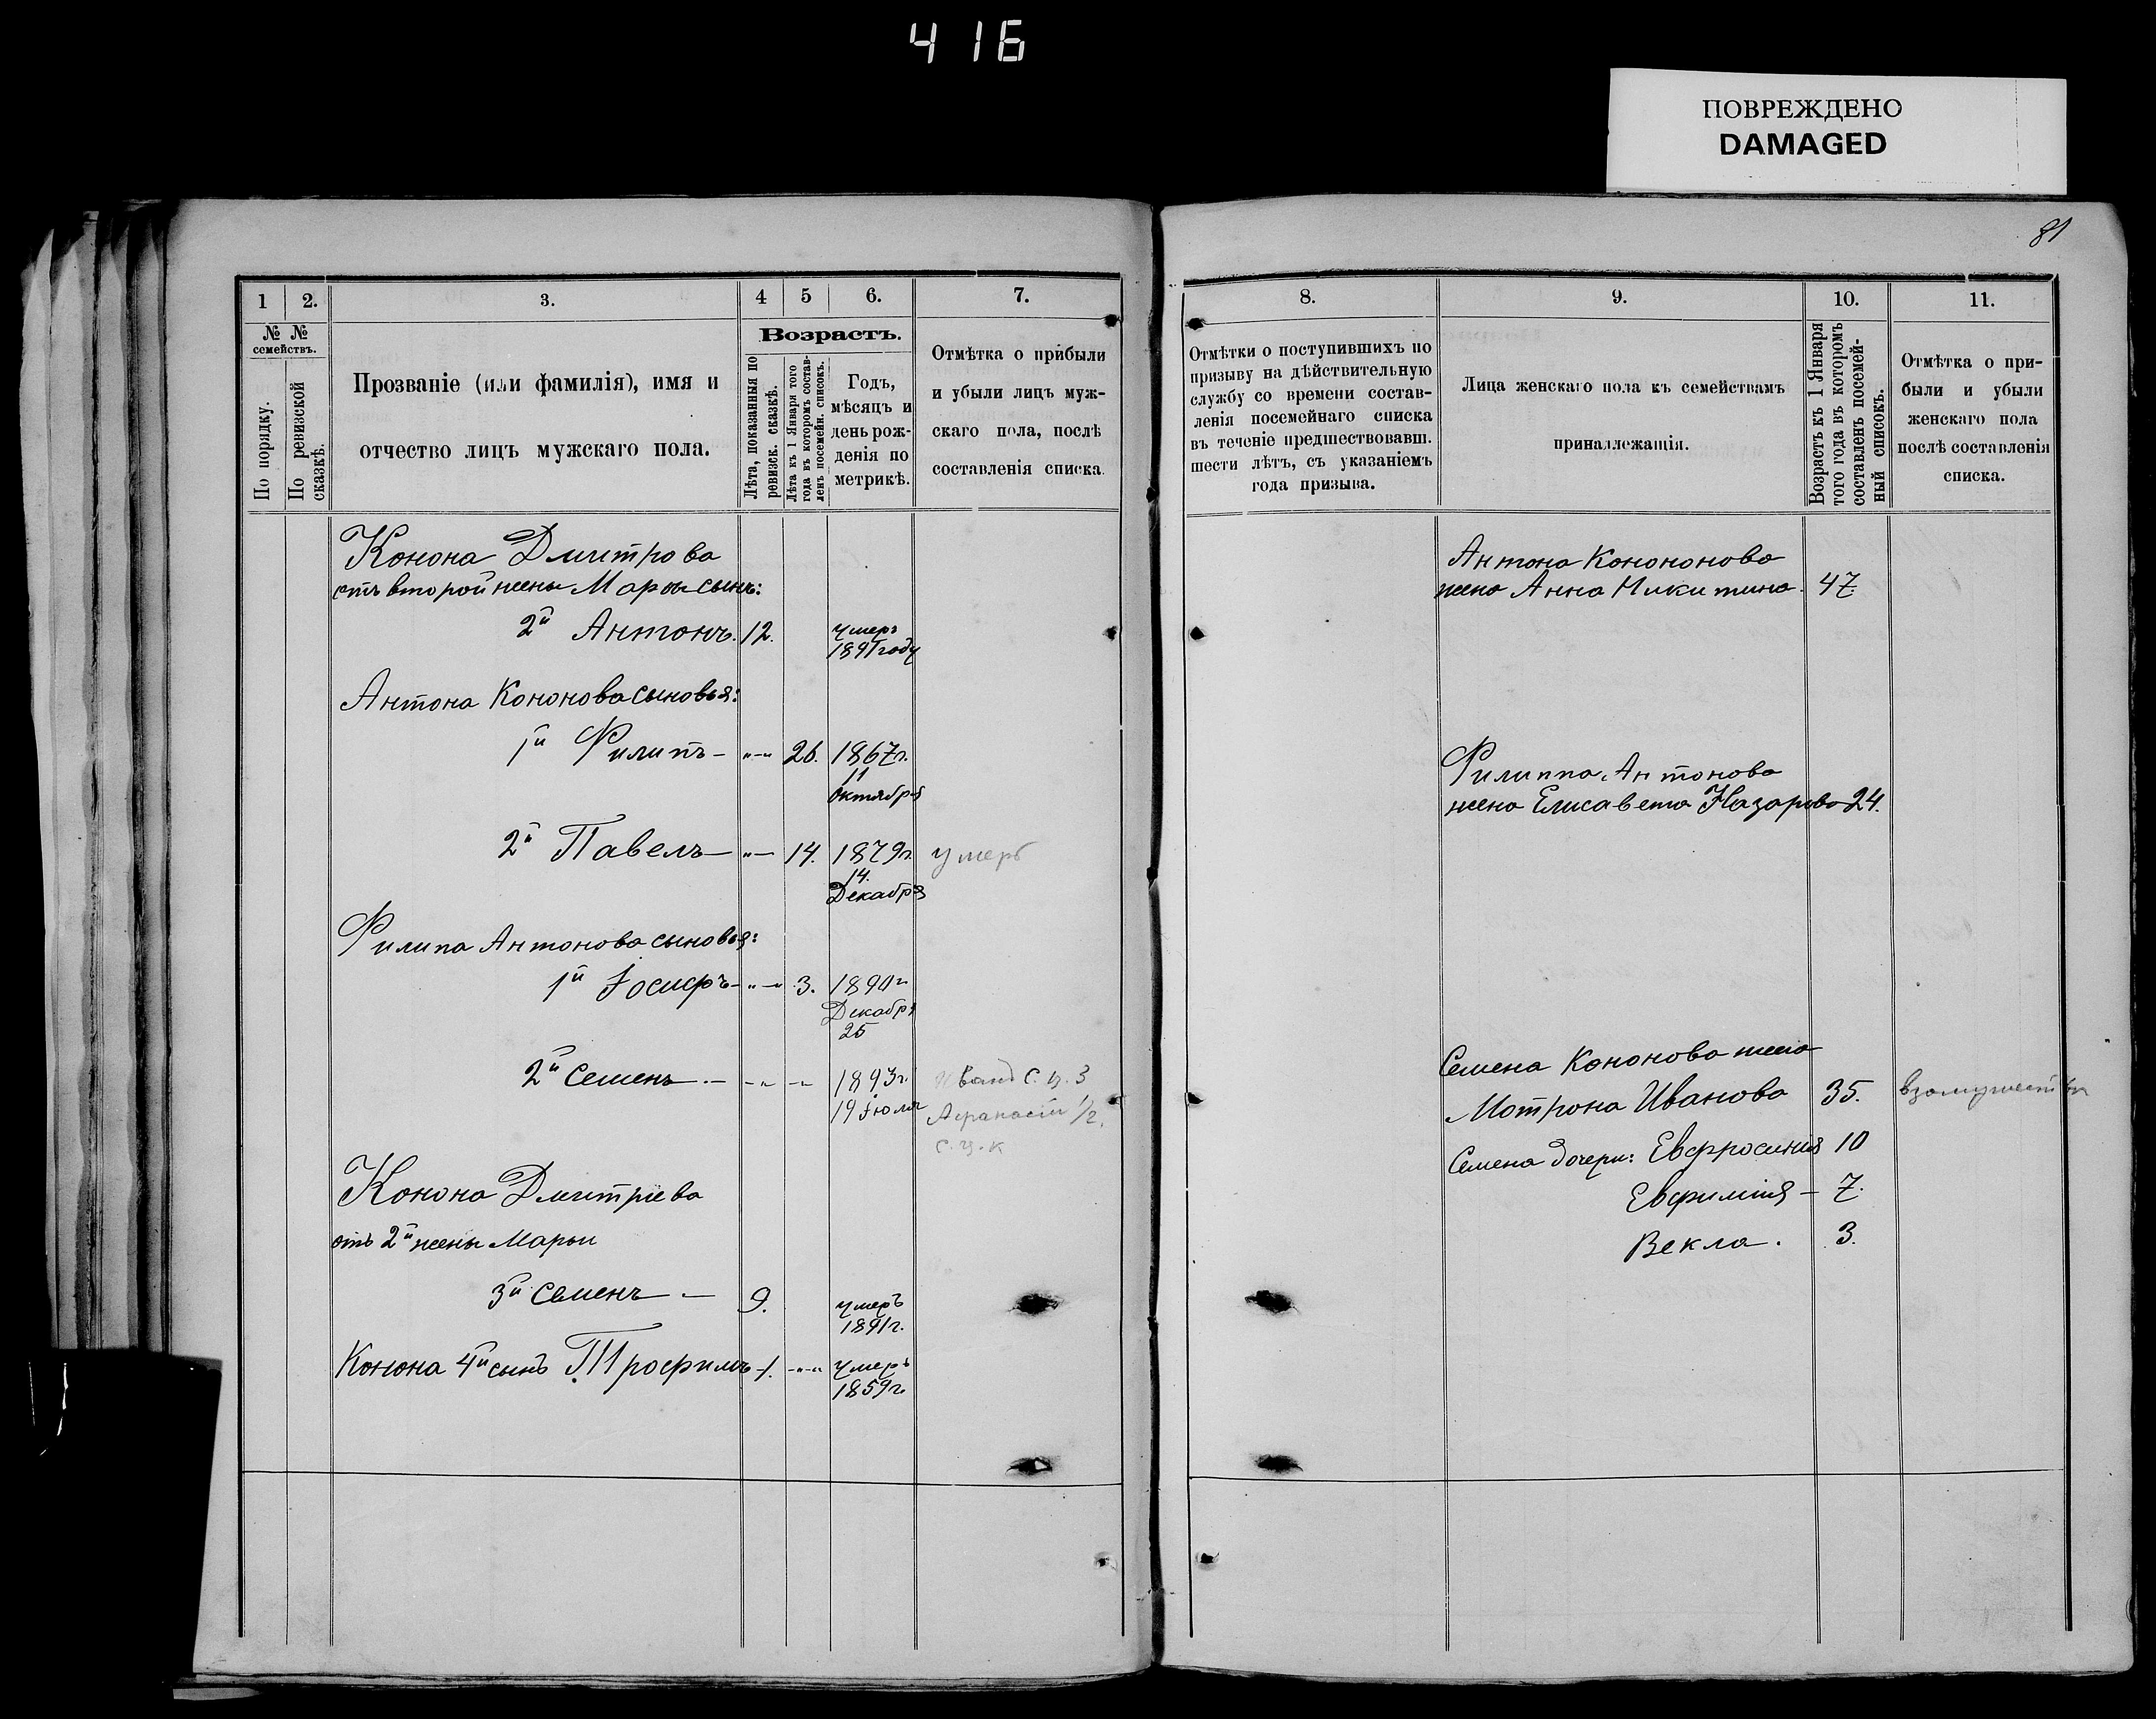 416
ПОВРЕЖДЕНО
DAMAGED
81
1
2.
3.
4
5
6.
7.
№ №
семействъ.
По порядку.
По ревизской
сказкѣ.
Прозваніе (или фамилія), имя и
отчество лицъ мужскаго пола.
Возрастъ.
Лѣта, показанныя по
ревизск. сказкѣ.
Лѣта къ 1 Января того
года въ которомъ состав-
ленъ посемейн. списокъ.
Годъ,
мѣсяцъ и
день рож-
денія по
метрикѣ.
Отмѣтка о прибыли
и убыли лицъ муж-
скаго пола, послѣ
составленія списка.
Конона Дмитрова
отъ второй жены Марьи сынъ:
2й Антонъ. 12. умеръ
1891 году
Антона Кононова сыновья:
1й Филипъ — „—„ 26. 1867г.
11
Октября
2й Павелъ — „— 14. 1879г. умеръ
14.
Декабря
Филипа Антонова сыновья:
1й Іосифъ — „—„ 3. 1890г.
Декабря
25
2й Семенъ — „ — 1893г. Иванъ С. ц. 3
19 Іюля Афанасій 1/2.
С. ц. к
Конона Дмитріева
отъ 2й жены Марьи
3й Семенъ — 9. умеръ
1891г.
Конона 4й сынъ Трофимъ 1. „—„ умеръ
1859г.
8.
9.
10.
11.
Отмѣтки о поступившихъ по
призыву на дѣйствительную
службу со времени состав-
ленія посемейнаго списка
въ теченіе предшествовавш.
шести лѣтъ, съ указаніемъ
года призыва.
Лица женскаго пола къ семействамъ
принадлежащія.
Возрастъ къ 1 Января
того года въ которомъ
составленъ посемей-
ный списокъ.
Отмѣтка о при-
были и убыли
женскаго пола
послѣ составленія
списка.
Антона Конононова
жена Анна Никитина. 47.
Филиппа Антонова
жена Елисавета Назарова 24.
Семена Кононова жена
Мотрона Иванова 35. взамужестви
Семена дочери: Евфросинія 10
Евфимія — 7.
Векла. 3.